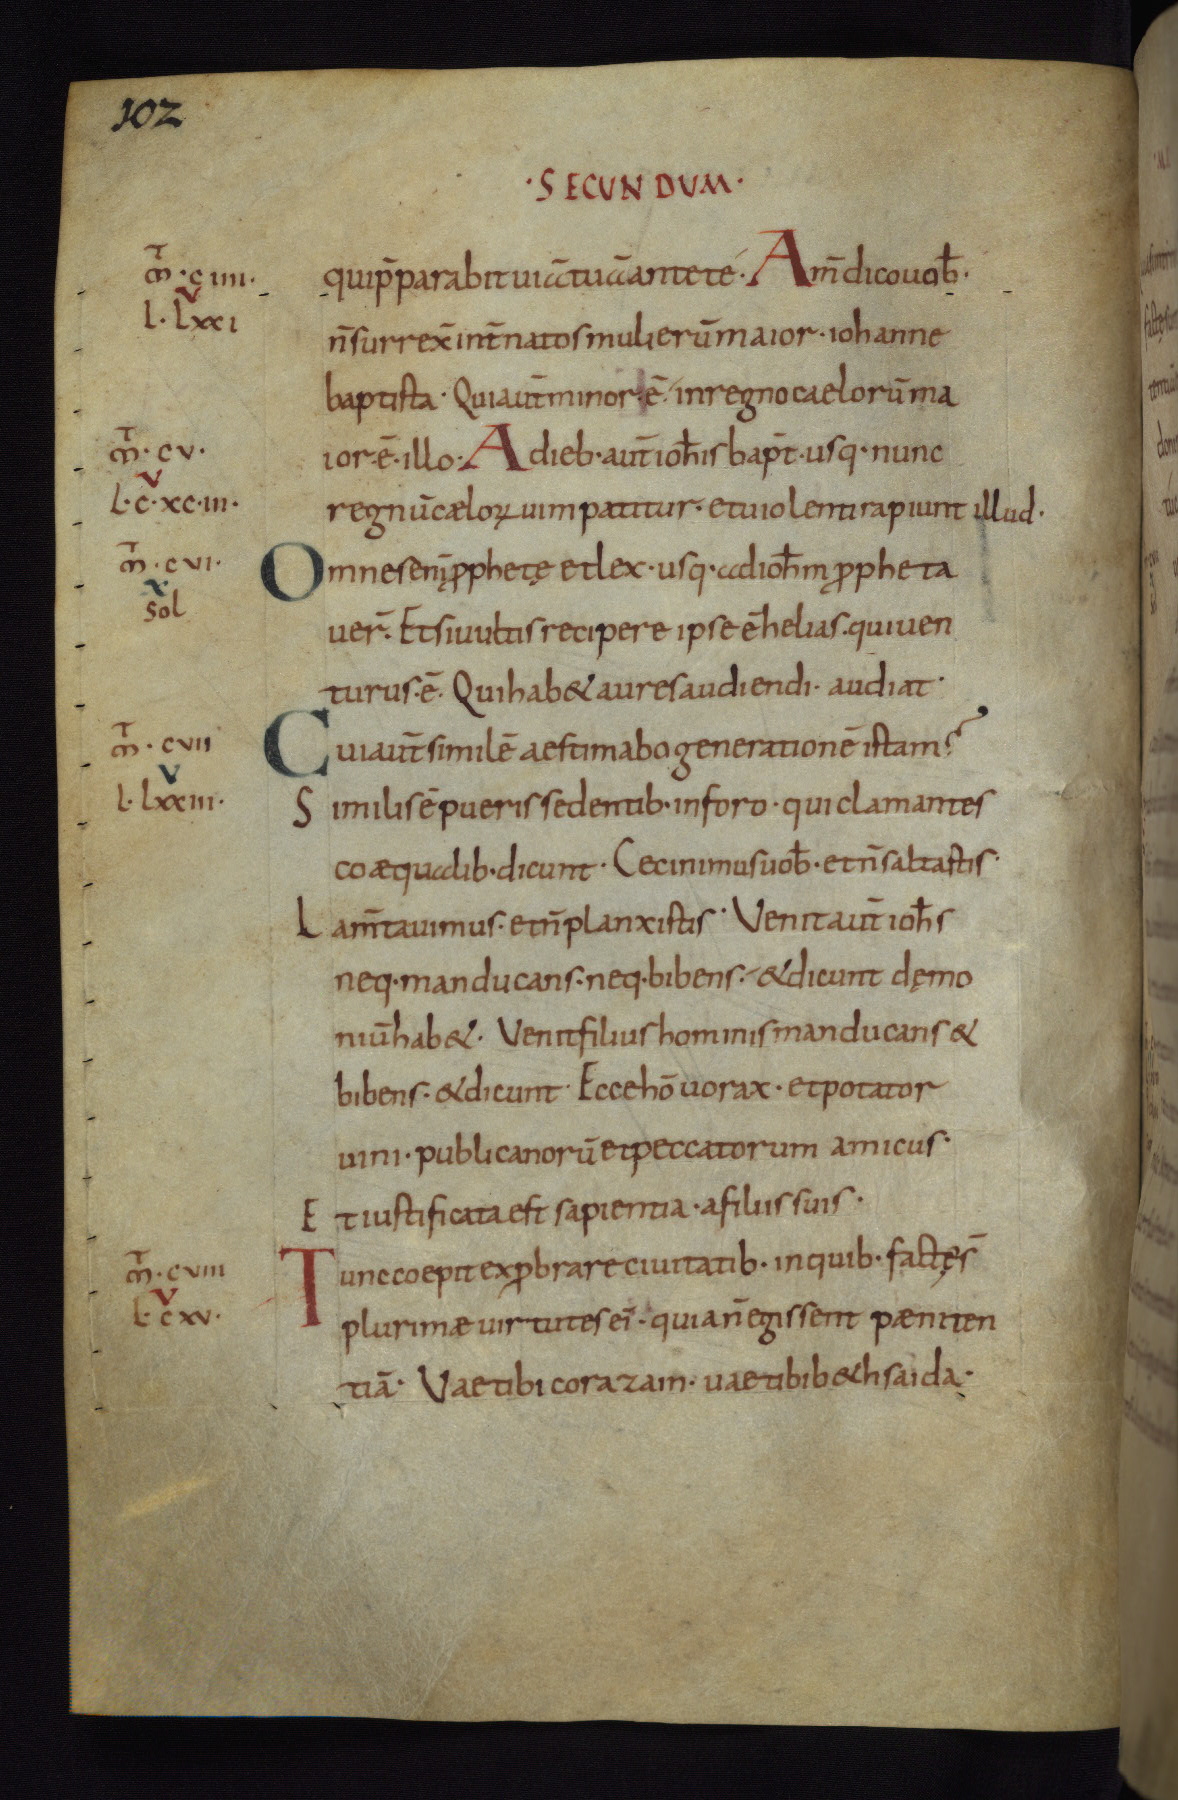 102
·SECUNDUM·
m̄·c iiii·
v
l·lxxi
qui p̄parabit uiā tuā ante te· Am̄ dico uob̄·
n̄ surrex̄ int̄ natos mulierū maior· iohanne
baptista· Qui aut̄ minor·ē· in regno caelorū ma
ior·ē·illo· A dieb·aut̄ ioh̄is bap̄t·usq·nunc
m̄·cv·
v
l·c·xc·iii·
regnū cæloꝝ uim patitur· et uiolenti rapiunt illud·
m̄·cvi·
x
sol
Omnes eni̅ ꝓphetę et lex·usq·ad ioh̄m ꝓpheta
uer̄· Et si uultis recipere ipse ē helias·qui uen
turus·ē· Qui hab& aures audiendi· audiat·
m̄·cvii
v
l·lxxiii·
Cui aut̄ similē aestimabo generationē istam?
Similis ē pueris sedentib·in foro·qui clamantes
coæqualib·dicunt· Cecinimus uob̄·et n̄ saltastis·
Lam̄tauimus·et n̄ planxistis· Venit aut̄ ioh̄s
neq·manducans·neq·bibens·&dicunt dęmo
niū hab&· Venit filius hominis manducans &
bibens·&dicunt· Ecce hō uorax·et potator
uini·publicanorū et peccatorum amicus·
Et iustificata est sapientia·a filiis suis·
m̄·cviii
v
l·cxv·
Tunc coepit exꝓbrare ciuitatib·in quib·factę s̄
plurimæ uirtutes ei̅·quia n̄ egissent pæniten
tiā· Vae tibi corazain·uae tibi b&hsaida·